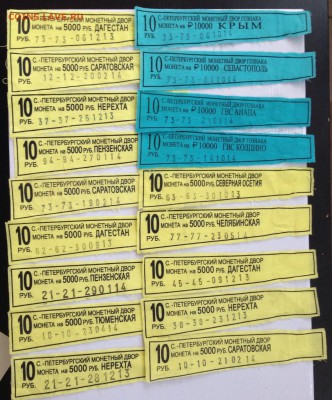 10 РУБ.
С.-ПЕТЕРБУРГСКИЙ МОНЕТНЫЙ ДВОР
МОНЕТА на 5000 РУБ. ДАГЕСТАН
73-73-061213
10 РУБ.
С.-ПЕТЕРБУРГСКИЙ МОНЕТНЫЙ ДВОР
МОНЕТА на 5000 РУБ. САРАТОВСКАЯ
12-12-200214
10 РУБ.
С.-ПЕТЕРБУРГСКИЙ МОНЕТНЫЙ ДВОР
МОНЕТА на 5000 РУБ. НЕРЕХТА
37-37-251213
10 РУБ.
С.-ПЕТЕРБУРГСКИЙ МОНЕТНЫЙ ДВОР
МОНЕТА на 5000 РУБ. ПЕНЗЕНСКАЯ
94-94-270114
10 РУБ.
С.-ПЕТЕРБУРГСКИЙ МОНЕТНЫЙ ДВОР
МОНЕТА на 5000 РУБ. САРАТОВСКАЯ
73-73-190214
10 РУБ.
С.-ПЕТЕРБУРГСКИЙ МОНЕТНЫЙ ДВОР
МОНЕТА на 5000 РУБ. ДАГЕСТАН
62-62-300813
10 РУБ.
С.-ПЕТЕРБУРГСКИЙ МОНЕТНЫЙ ДВОР
МОНЕТА на 5000 РУБ. ПЕНЗЕНСКАЯ
21-21-290114
10 РУБ.
С.-ПЕТЕРБУРГСКИЙ МОНЕТНЫЙ ДВОР
МОНЕТА на 5000 РУБ. ТЮМЕНСКАЯ
10-10-230414
10 РУБ.
С.-ПЕТЕРБУРГСКИЙ МОНЕТНЫЙ ДВОР
МОНЕТА на 5000 РУБ. НЕРЕХТА
21-21-261213
10 РУБ.
С.-ПЕТЕРБУРГСКИЙ МОНЕТНЫЙ ДВОР ГОЗНАКА
МОНЕТА НА ₽10000 КРЫМ
10 РУБ.
С.-ПЕТЕРБУРГСКИЙ МОНЕТНЫЙ ДВОР ГОЗНАКА
МОНЕТА НА ₽10000 СЕВАСТОПОЛЬ
10 РУБ.
С.-ПЕТЕРБУРГСКИЙ МОНЕТНЫЙ ДВОР ГОЗНАКА
МОНЕТА НА ₽10000 ГВС АНАПА
10 РУБ.
С.-ПЕТЕРБУРГСКИЙ МОНЕТНЫЙ ДВОР ГОЗНАКА
МОНЕТА НА ₽10000 ГВС
10 РУБ.
С.-ПЕТЕРБУРГСКИЙ МОНЕТНЫЙ ДВОР
МОНЕТА на 5000 РУБ. СЕВЕРНАЯ ОСЕТИЯ
10 РУБ.
С.-ПЕТЕРБУРГСКИЙ МОНЕТНЫЙ ДВОР
МОНЕТА на 5000 РУБ. ЧЕЛЯБИНСКАЯ
77-77-230514
10 РУБ.
С.-ПЕТЕРБУРГСКИЙ МОНЕТНЫЙ ДВОР
МОНЕТА на 5000 РУБ. ДАГЕСТАН
45-45-091213
10 РУБ.
С.-ПЕТЕРБУРГСКИЙ МОНЕТНЫЙ ДВОР
МОНЕТА на 5000 РУБ. НЕРЕХТА
10 РУБ.
С.-ПЕТЕРБУРГСКИЙ МОНЕТНЫЙ ДВОР
МОНЕТА на 5000 РУБ. САРАТОВСКАЯ
10-10-210214